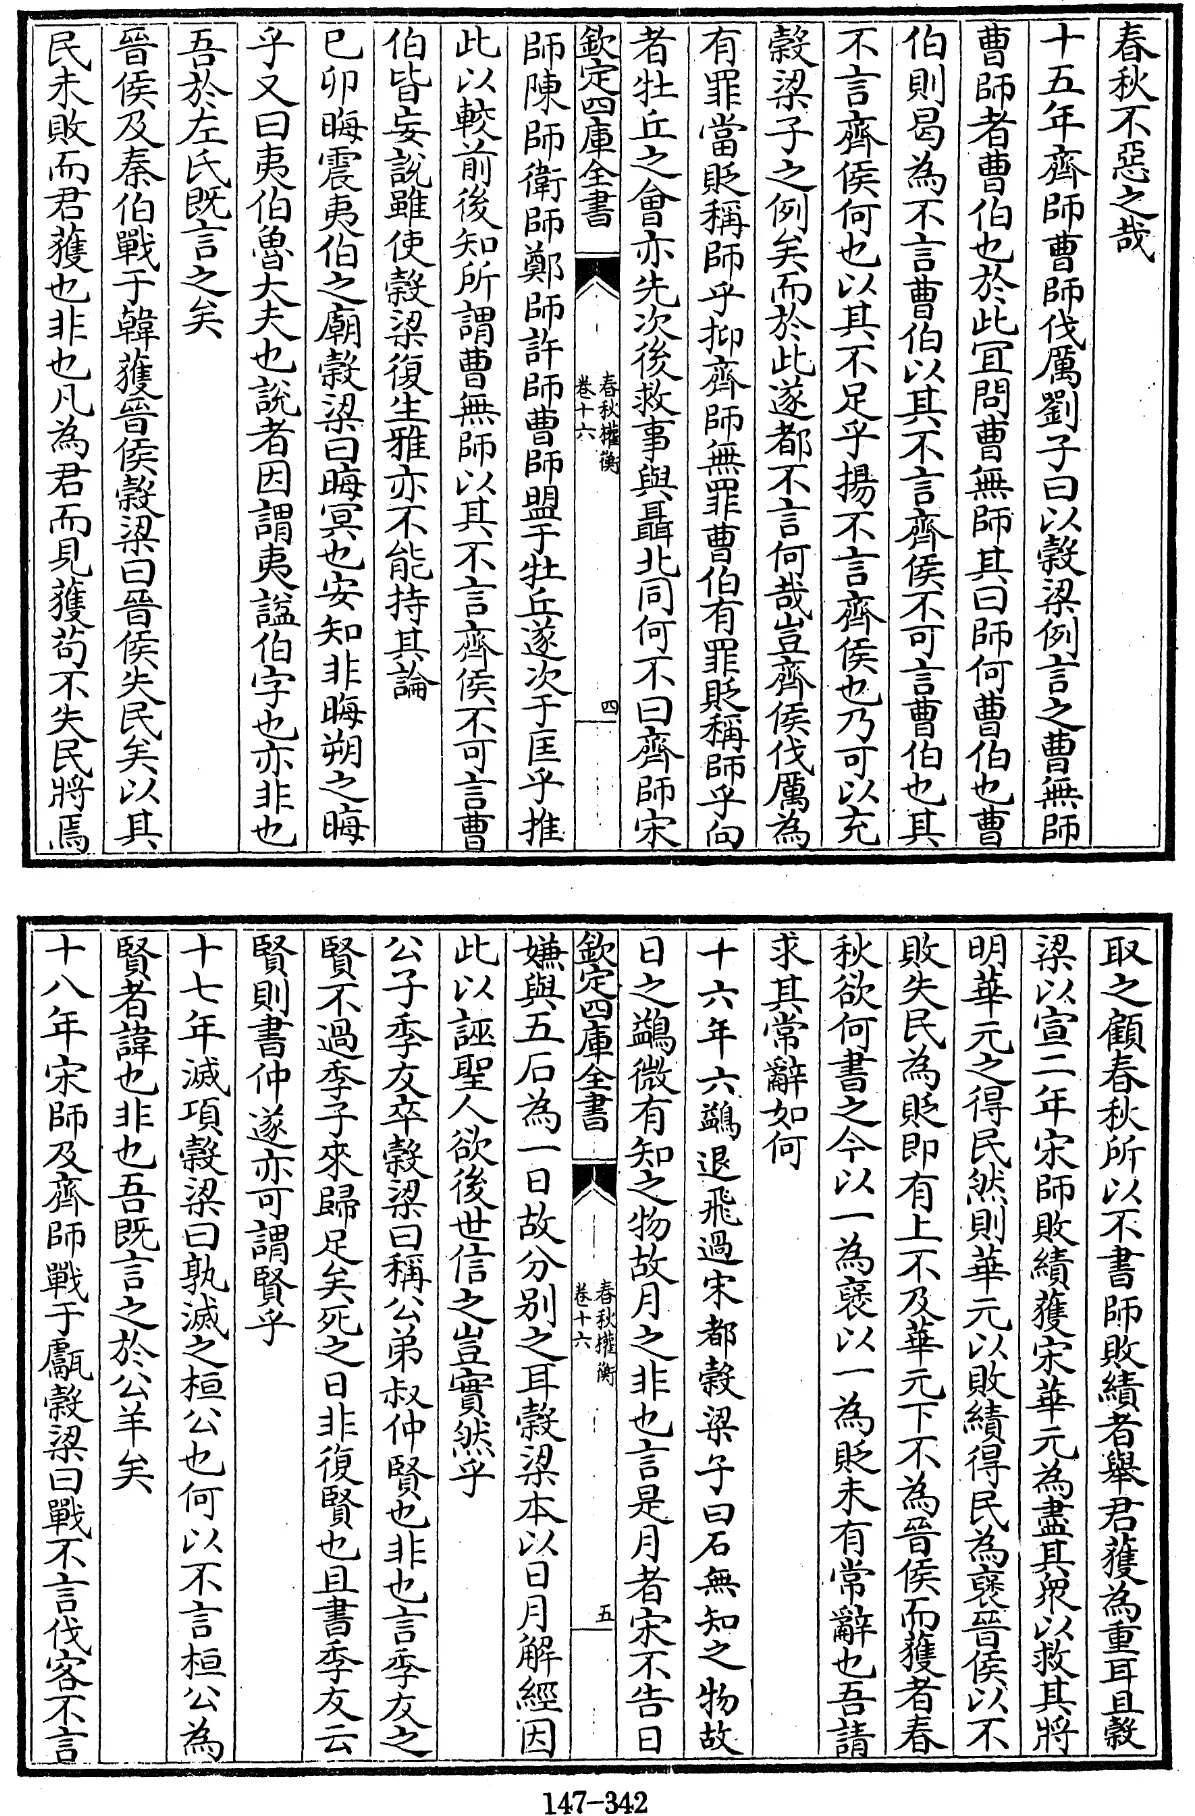 春秋不惡之哉
十五年齊師曹師伐厲劉子曰以穀梁例言之曹無師
曹師者曹伯也於此宜問曹無師其曰師何曹伯也曹
伯則曷為不言曹伯以其不言齊侯不可言曹伯也其
不言齊侯何也以其不足乎揚不言齊侯也乃可以充
穀梁子之例矣而於此遂都不言何哉豈齊侯伐厲為
有罪當貶稱師乎抑齊師無罪曹伯有罪貶稱師乎向
者牡丘之會亦先次後救事與聶北同何不曰齊師宋
欽定四庫全書
春秋權衡
卷十六
四
師陳師衛師鄭師許師曹師盟于牡丘遂次于匡乎推
此以較前後知所謂曹無師以其不言齊侯不可言曹
伯皆妄說雖使穀梁復生雅亦不能持其論
已卯晦震夷伯之廟穀梁曰晦冥也安知非晦朔之晦
乎又曰夷伯魯大夫也說者因謂夷諡伯字也亦非也
吾於左氏既言之矣
晉侯及秦伯戰于韓獲晉侯穀梁曰晉侯失民矣以其
民未敗而君獲也非也凡為君而見獲苟不失民將焉
取之顧春秋所以不書師敗績者舉君獲為重耳且穀
梁以宣二年宋師敗績獲宋華元為盡其衆以救其將
明華元之得民然則華元以敗績得民為襃晉侯以不
敗失民為貶即有上不及華元下不為晉侯而獲者春
秋欲何書之今以一為襃以一為貶未有常辭也吾請
求其常辭如何
十六年六鷁退飛過宋都穀梁子曰石無知之物故
日之鷁微有知之物故月之非也言是月者宋不告日
欽定四庫全書
春秋權衡
卷十六
五
嫌與五石為一日故分別之耳穀梁本以日月解經因
此以誣聖人欲後世信之豈實然乎
公子季友卒穀梁曰稱公弟叔仲賢也非也言季友之
賢不過季子來歸足矣死之日非復賢也且書季友云
賢則書仲遂亦可謂賢乎
十七年滅項穀梁曰孰滅之桓公也何以不言桓公為
賢者諱也非也吾既言之於公羊矣
十八年宋師及齊師戰于甗穀梁曰戰不言伐客不言
147-342